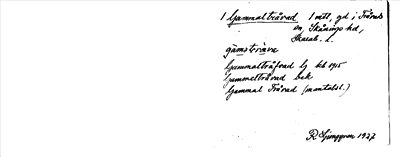 1 Gammalträvad 1 mtl, gd i Trävads
sn, Skånings hd,
Skarab. l.
gàmstrǹva
Gammalträfvad Lj kb 1915
Gammelträvad bek
Gammal Trävad (mantalsl.)
R Ljunggren 1927